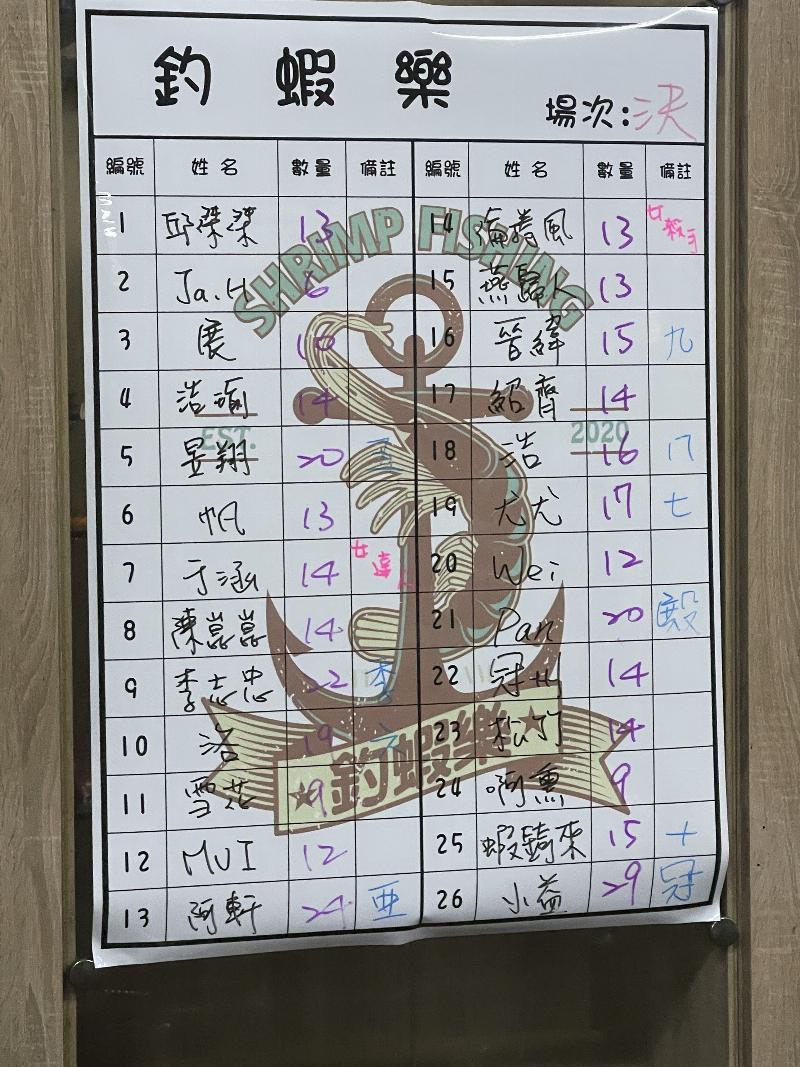 釣 蝦 樂
場次:決
編號 姓名 數量 備註 編號 姓名 數量 備註
1 邱傑傑 13 14 海 風 13 女殺手
2 Ja.H 8 15 燕 人 13
3 展 10 16 晉緯 15 九
4 浩瑜 14 17 紹齊 14
5 昱翔 20 18 浩 16 八
6 帆 13 19 尤尤 17 七
7 于涵 14 女達人 20 Wei 12
8 陳崑崑 14 21 Pan 20 殿
9 李志忠 22 季 22 冠州 14
10 洛 19 六 23 松竹 14
11 雪花 9 24 啊魚 9
12 MUI 12 25 蝦騎來 15 十
13 阿軒 24 亞 26 小益 29 冠
SHRIMP FISHING
EST. 2020
釣蝦樂